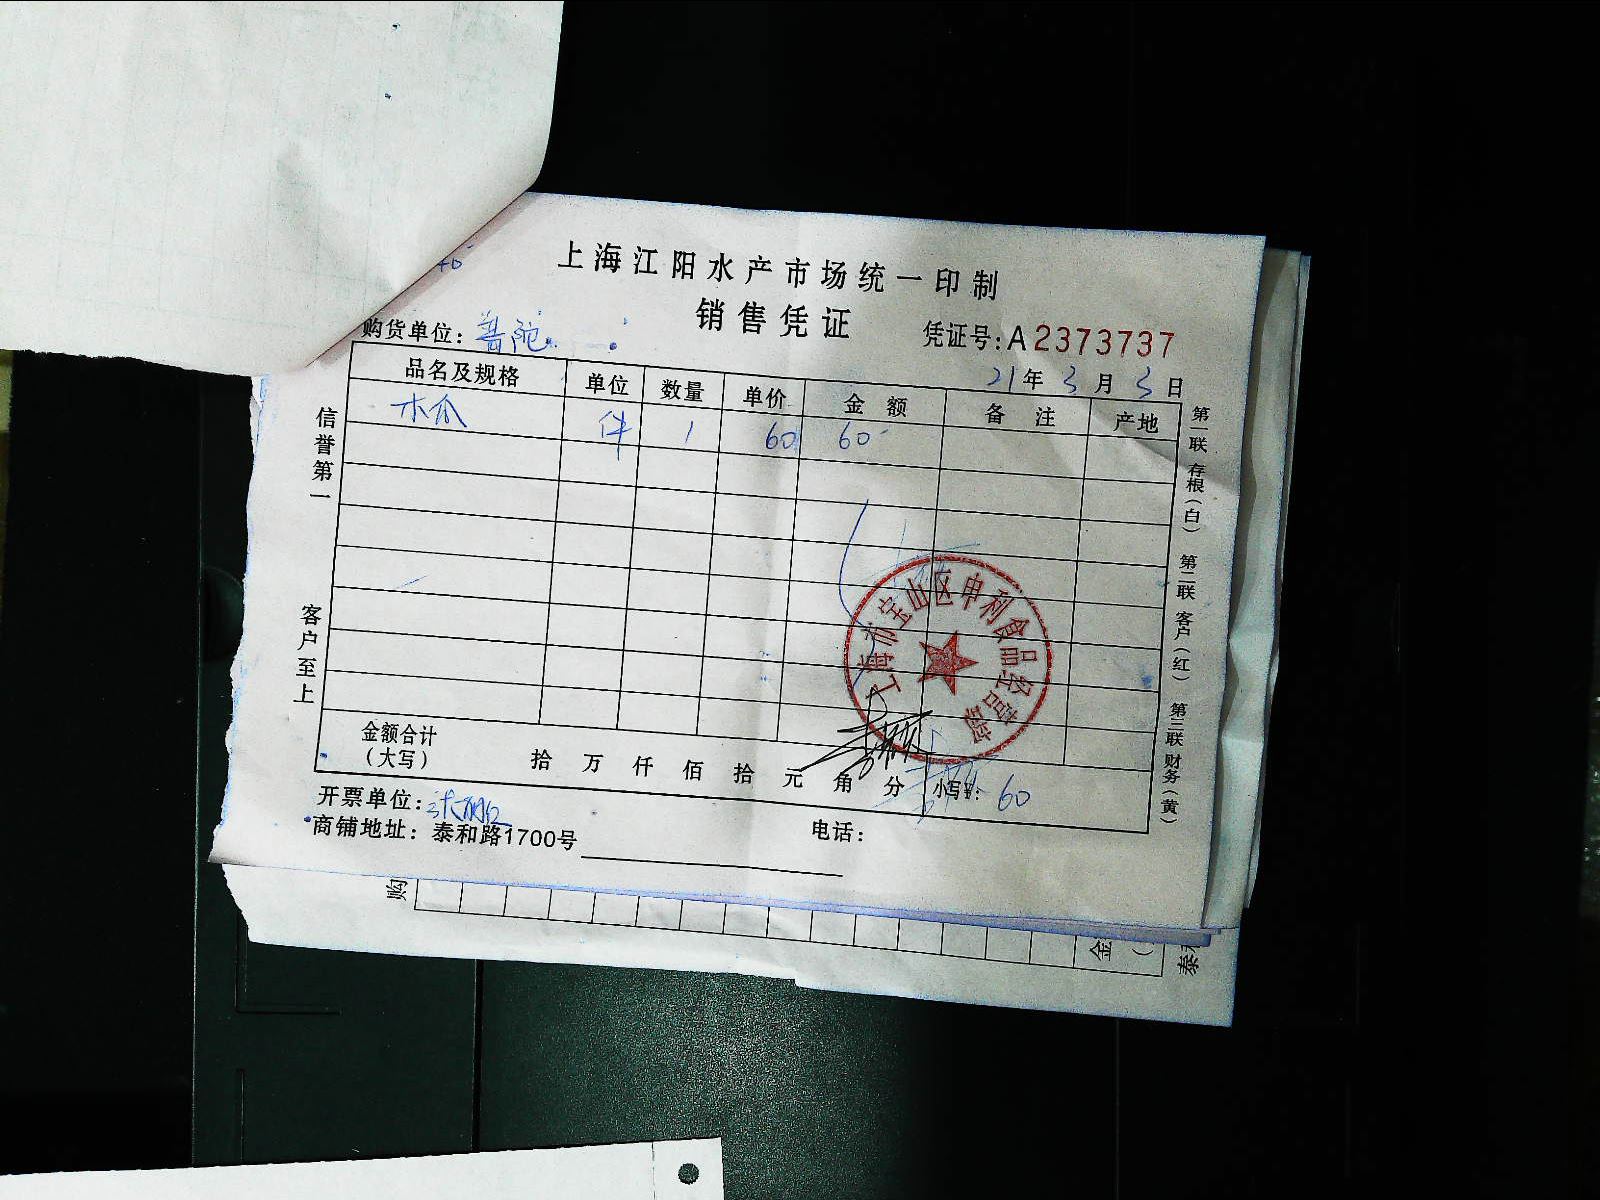 40
上海江阳水产市场统一印制
销售凭证
购货单位：普陀
凭证号：A2373737
21年3月3日
品名及规格 单位 数量 单价 金额 备注 产地
木瓜 件 1 60 60
信誉第一
客户至上
第一联 存根（白） 第二联 客户（红） 第三联 财务（黄）
上海市宝山区申利食品经营部
金额合计
（大写） 拾 万 仟 佰 拾 元 角 分 小写¥： 60
开票单位：
商铺地址：泰和路1700号
电话：
购
金
（
泰